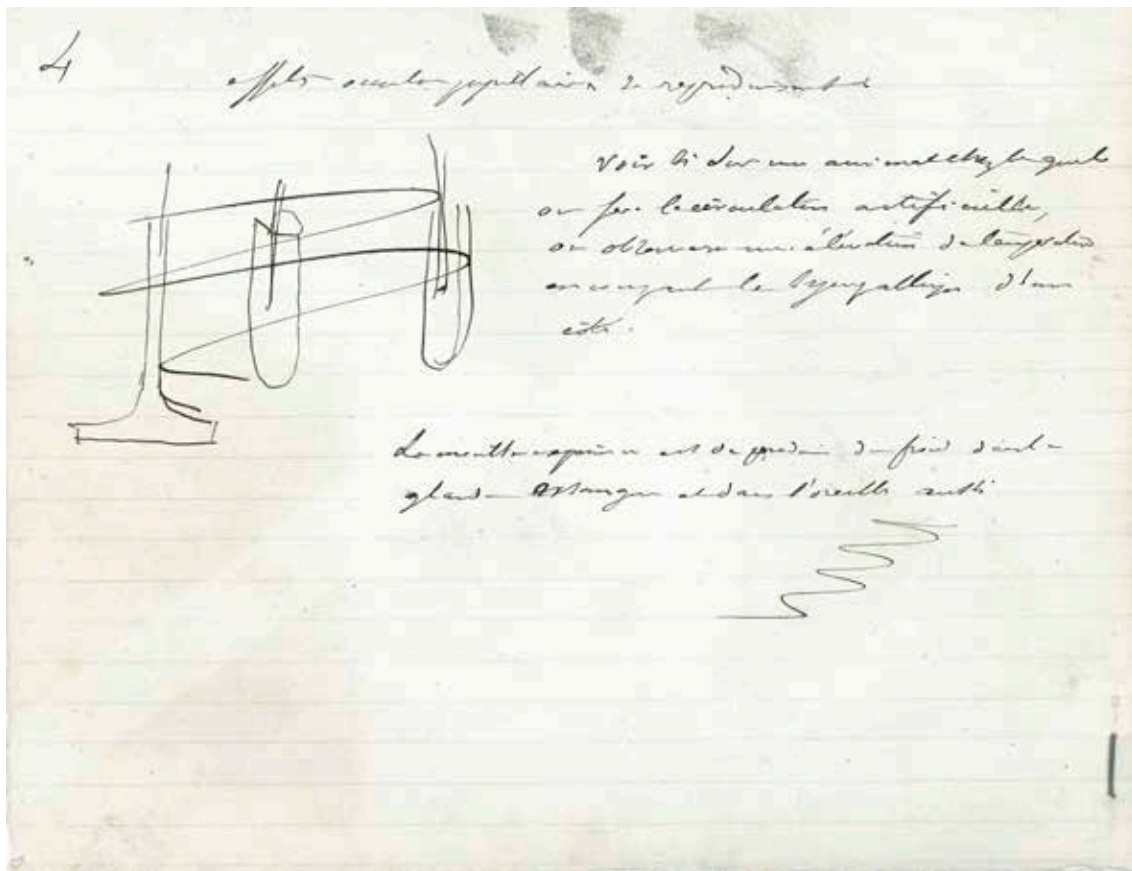 4
effets oculo pupillaires se reproduisent
Voir si sur un animal chez lequel
on fera la circulation artificielle,
on observera une élévation de température
en coupant le sympathique d'un
côté.
La meilleure expérience est de produire du froid dans la
glande et dans l'oreille aussi